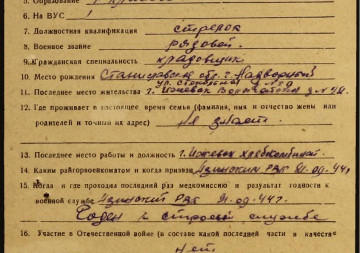 5. Образование
6. На ВУС
7. Должностная квалификация стрелок
8. Военное звание рядовой
9. Гражданская специальность кладовщик
10. Место рождения Станиславская обл. г. Надворный
11. Последнее место жительства г. Ижевск д. № 42
12. Где проживает в настоящее время семья (фамилия, имя и отчество жены или
родителей и точный их адрес) не знает
13. Последнее место работы и должность г. Ижевск хлебкомбинат
14. Каким райгорвоенкоматом и когда призван Азинским РВК 21.09.44 г.
15. Когда и где проходил последний раз медкомиссию и результат годности к
военной службе Азинский РВК 21.09.44 г.
Годен к строевой службе
16. Участие в Отечественной войне (в составе какой последней части и качестве
Нет